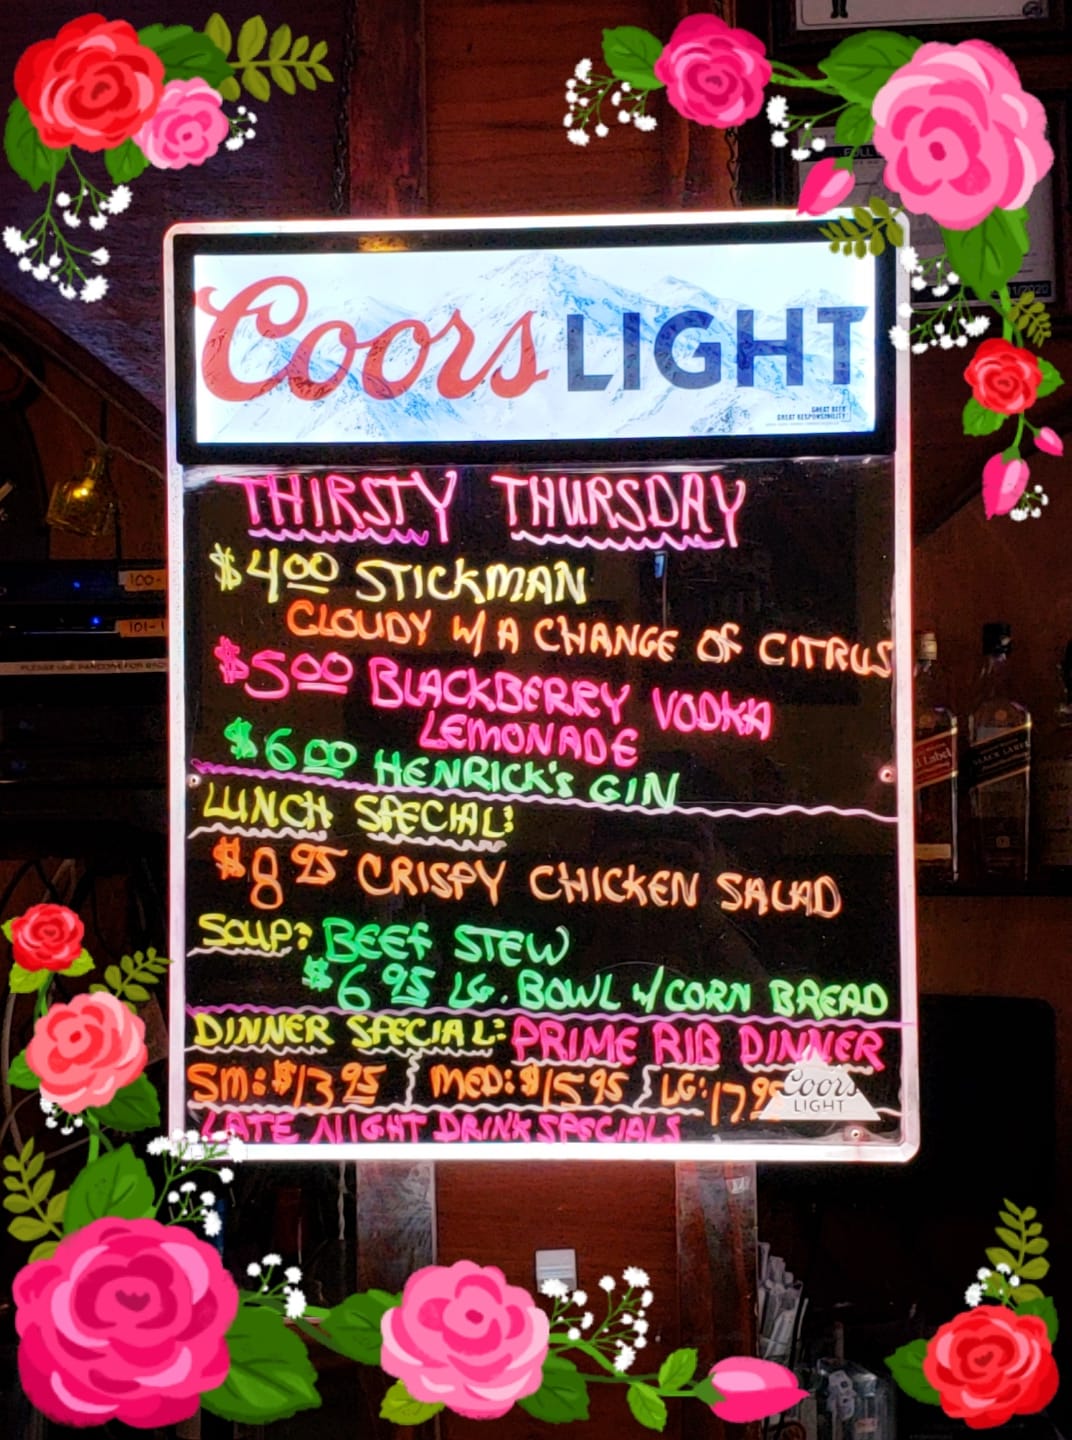 Coors LIGHT
GREAT BEER
GREAT RESPONSIBILITY
THIRSTY THURSDAY
$4.00 STICKMAN
CLOUDY W/ A CHANGE OF CITRUS
$5.00 BLACKBERRY VODKA
LEMONADE
$6.00 HENRICK'S GIN
LUNCH SPECIAL:
$8.95 CRISPY CHICKEN SALAD
SOUP: BEEF STEW
$6.95 LG. BOWL W/ CORN BREAD
DINNER SPECIAL: PRIME RIB DINNER
SM: $13.95 MED: $15.95 LG: 17.95
Coors
LIGHT
LATE NIGHT DRINK SPECIALS
Label
BLACK LABEL
100-
101-1
11/2020